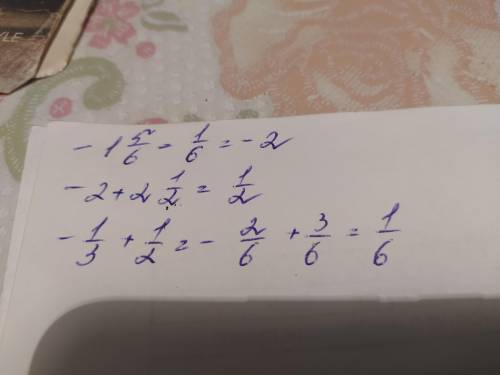 YLE
- 1 5/6 = 1/6 = - 2
- 2 + 2 1/2 = 1/2
- 1/3 + 1/2 = - 2/6 + 3/6 = 1/6